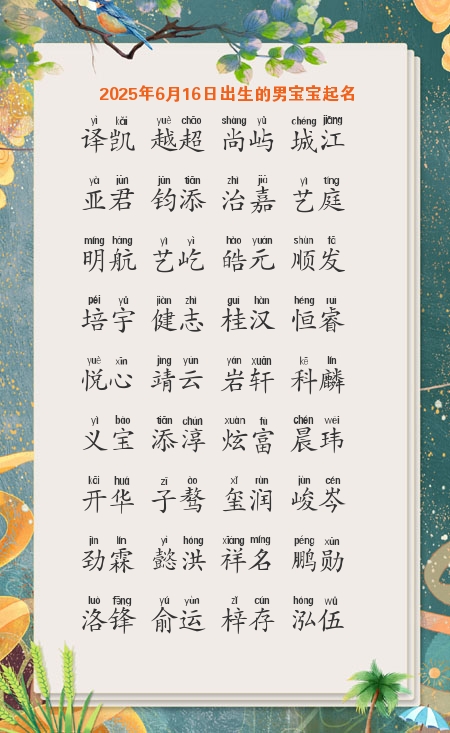 2025年6月16日出生的男宝宝起名
yì kǎi yuè chāo shàng yǔ chéng jiāng
译凯 越超 尚屿 城江
yà jūn jūn tiān zhì jiā yì tíng
亚君 钧添 治嘉 艺庭
míng háng yì yì hào yuán shùn fā
明航 艺屹 皓元 顺发
péi yǔ jiàn zhì guì hàn héng ruì
培宇 健志 桂汉 恒睿
yuè xīn jìng yún yán xuān kē lín
悦心 靖云 岩轩 科麟
yì bǎo tiān chún xuàn fù chén wěi
义宝 添淳 炫富 晨玮
kāi huá zǐ ào xǐ rùn jùn cén
开华 子骜 玺润 峻岑
jìn lín yì hóng xiáng míng péng xūn
劲霖 懿洪 祥名 鹏勋
luò fēng yú yùn zǐ cún hóng wǔ
洛锋 俞运 梓存 泓伍